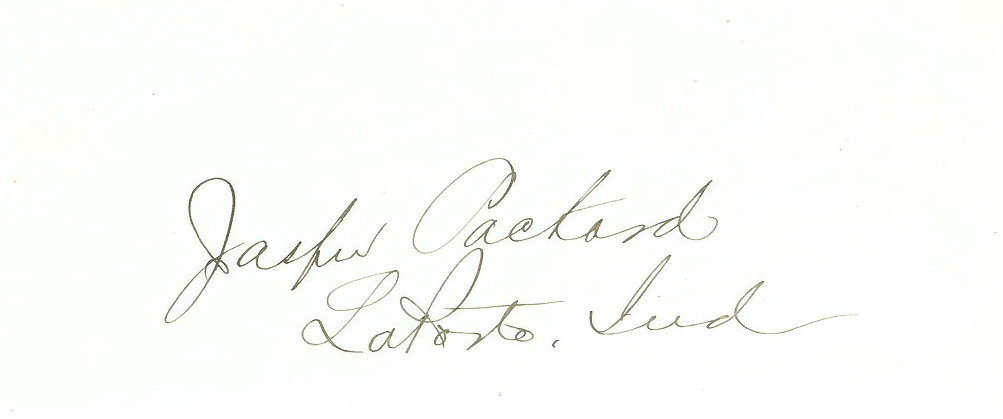 Jasper Packard
LaPorte, Ind